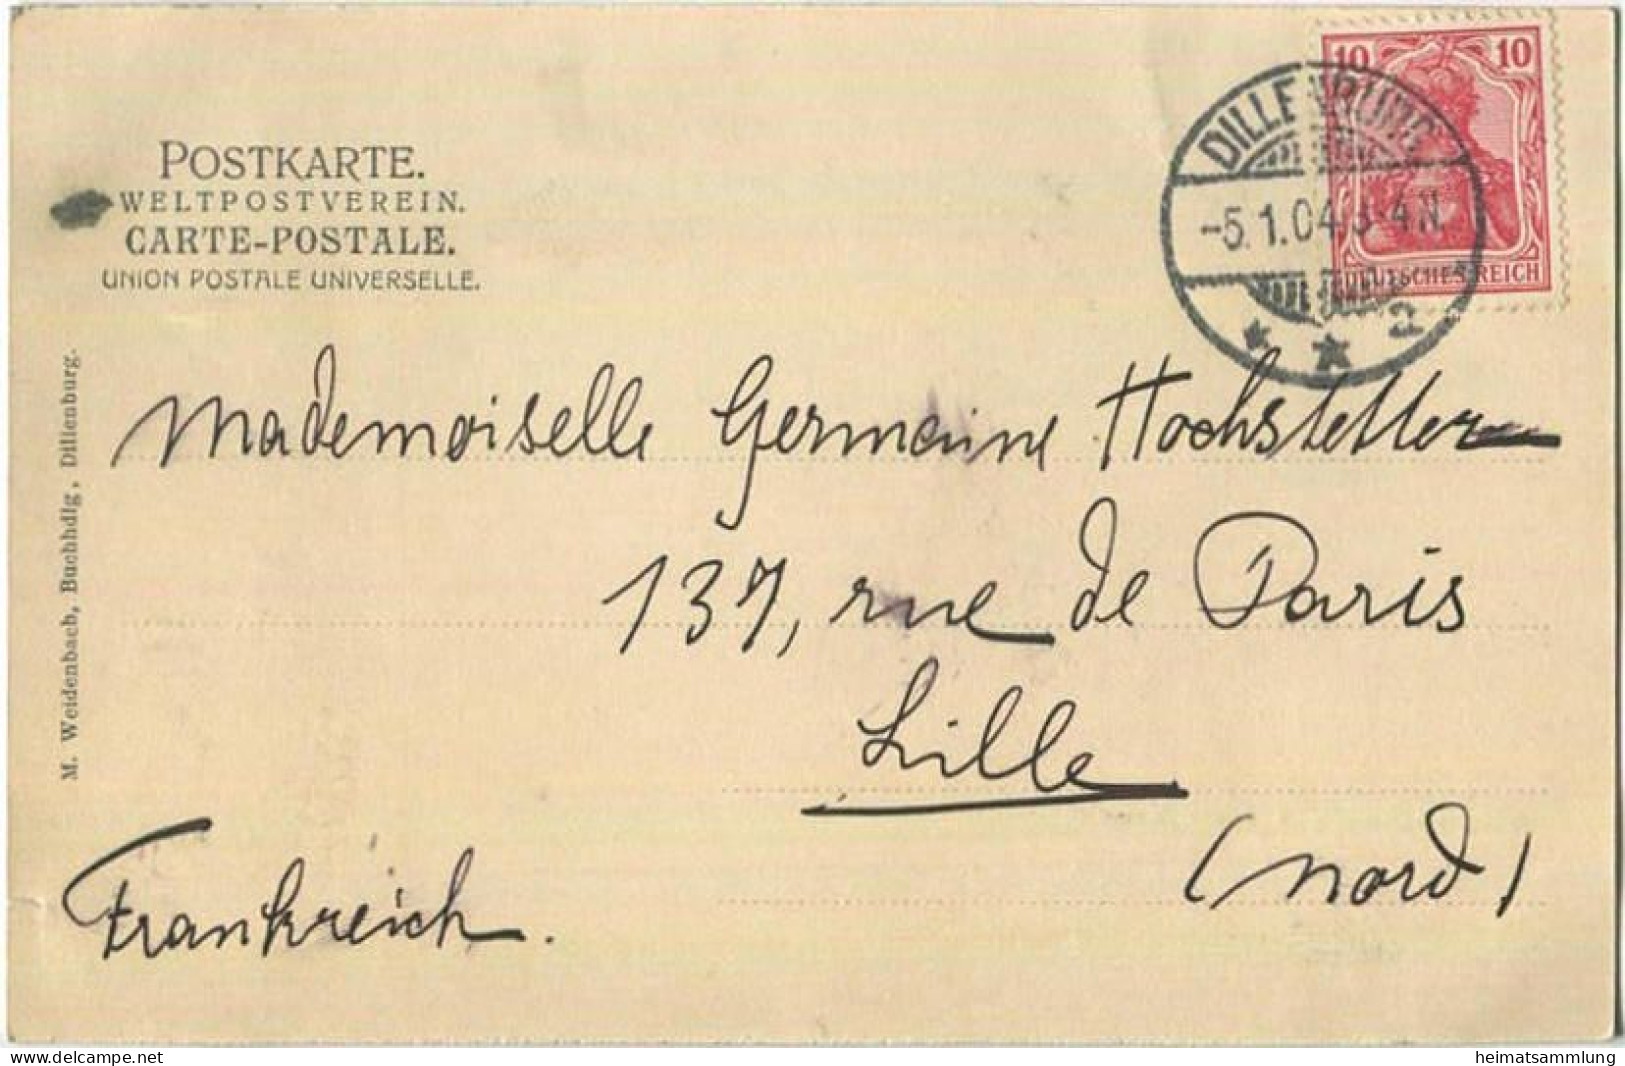 POSTKARTE.
WELTPOSTVEREIN.
CARTE-POSTALE.
UNION POSTALE UNIVERSELLE.
10 10
DEUTSCHES REICH
DILLENBURG
-5.1.04. 3-4 N.
M. Weidenbach, Buchhdlg, Dillenburg.
Mademoiselle Germaine Hochstetter
137, rue de Paris
Lille
(Nord)
Frankreich.
delcampe.net
heimatsammlung